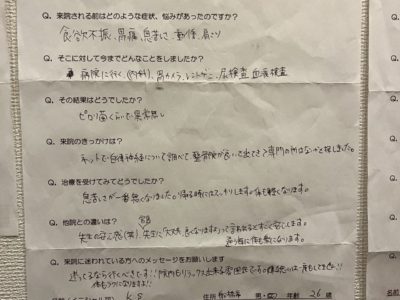 Q. 来院される前はどのような症状、悩みがあったのですか？
食欲不振、胃痛、息苦しさ、動悸、肩こり
Q. そこに対して今までどんなことをしましたか？
病院に行く（内科）、胃カメラ、レントゲン、尿検査、血液検査
Q. その結果はどうでしたか？
ピロリ菌くらいで異常無し
Q. 来院のきっかけは？
ネットで自律神経について調べて整骨院が良いと出てきて専門の所はないかと探しました。
Q. 治療を受けてみてどうでしたか？
息苦しさが一番無くなりました。帰る時にはスッキリします。体も軽くなります。
Q. 他院との違いは？
先生の安心感（笑）先生に「大丈夫、良くなりますよ」って言われるとすごく安心します。
通う毎に体も軽くなります。
Q. 来院に迷われている方へのメッセージをお願いします
迷ってるなら行くべきです!! 院内もリラックス出来る雰囲気です。
体もラクになりますよ!!
K.S 住所 男・女 年齢 26 歳